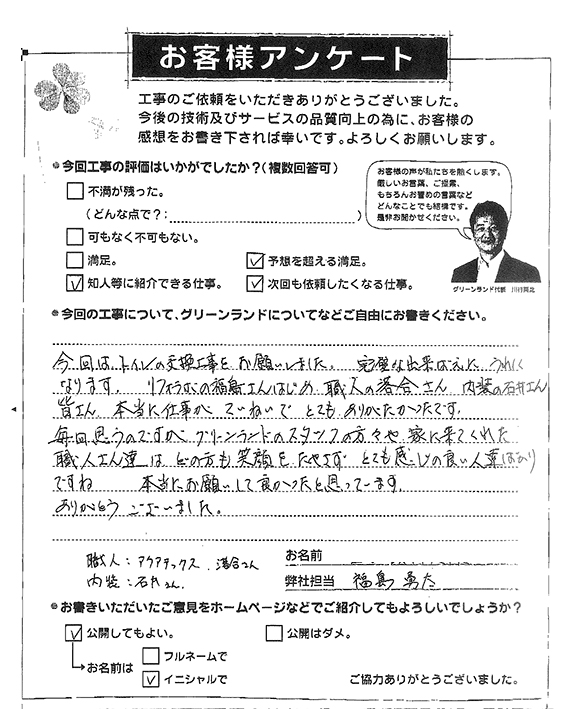 お客様アンケート
工事のご依頼をいただきありがとうございました。
今後の技術及びサービスの品質向上の為に、お客様の
感想をお書き下されば幸いです。よろしくお願いします。
今回工事の評価はいかがでしたか?(複数回答可)
不満が残った。
(どんな点で?: )
可もなく不可もない。
満足。
予想を超える満足。
知人等に紹介できる仕事。
次回も依頼したくなる仕事。
お客様の声が私たちを動くします。
厳しいお言葉、ご提案、
もちろんお誉めの言葉など
どんなことでも結構です。
是非お聞かせください。
グリーンランド代表
今回の工事について、グリーンランドについてなどご自由にお書きください。
今回は トイレの交換工事を お願いしました。 完璧な出来ばえに うれしく
なります。 リフォームの福島さんはじめ 職人の落合さん 内装の石井さん
皆さん 本当に仕事が ていねいで とても ありがたかったです。
毎回思うのですが グリーンランドのスタッフの方々や 家に来てくれた
職人さん達は どの方も 笑顔を たやさず とても感じの良い人達ばかり
ですね 本当にお願いして良かったと思っています。
ありがとう ございました。
職人:アクアテックス 落合さん
内装:石井さん
お名前
弊社担当 福島 勇太
お書きいただいたご意見をホームページなどでご紹介してもよろしいでしょうか?
公開してもよい。
公開はダメ。
お名前は
フルネームで
イニシャルで
ご協力ありがとうございました。